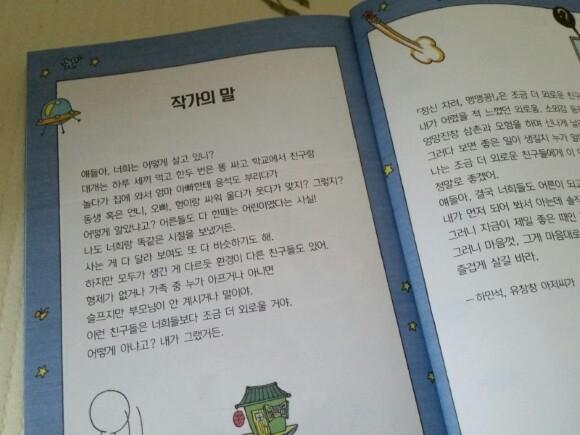 작가의 말
얘들아, 너희는 어떻게 살고 있니?
대개는 하루 세끼 먹고 한두 번은 똥 싸고 학교에서 친구랑
놀다가 집에 와서 엄마 아빠한테 응석도 부리다가
동생 혹은 언니, 오빠, 형이랑 싸워 울다가 웃다가 맞지? 그렇지?
어떻게 알았냐고? 어른들도 다 한때는 어린이였다는 사실!
나도 너희랑 똑같은 시절을 보냈거든.
사는 게 다 달라 보여도 또 다 비슷하기도 해.
하지만 모두가 생긴 게 다르듯 환경이 다른 친구들도 있어.
형제가 없거나 가족 중 누가 아프거나 아니면
슬프지만 부모님이 안 계시거나 말이야.
이런 친구들은 너희들보다 조금 더 외로울 거야.
어떻게 아냐고? 내가 그랬거든.
『정신 차려, 맹맹꽁!』은 조금 더 외로운 친구
내가 어렸을 적 느꼈던 외로움, 소외감 등
엉망진창 삼촌과 모험을 하며 신나게
그러다 보면 좋은 일이 생길지 누가
나는 조금 더 외로운 친구들에게 이
정말로 좋겠어.
얘들아, 결국 너희들도 어른이 되고
내가 먼저 되어 봐서 아는데 솔직
그러니 지금이 제일 좋은 때인
그러니 마음껏, 그게 마음대로
즐겁게 살길 바라.
— 하민석, 유창창 아저씨가